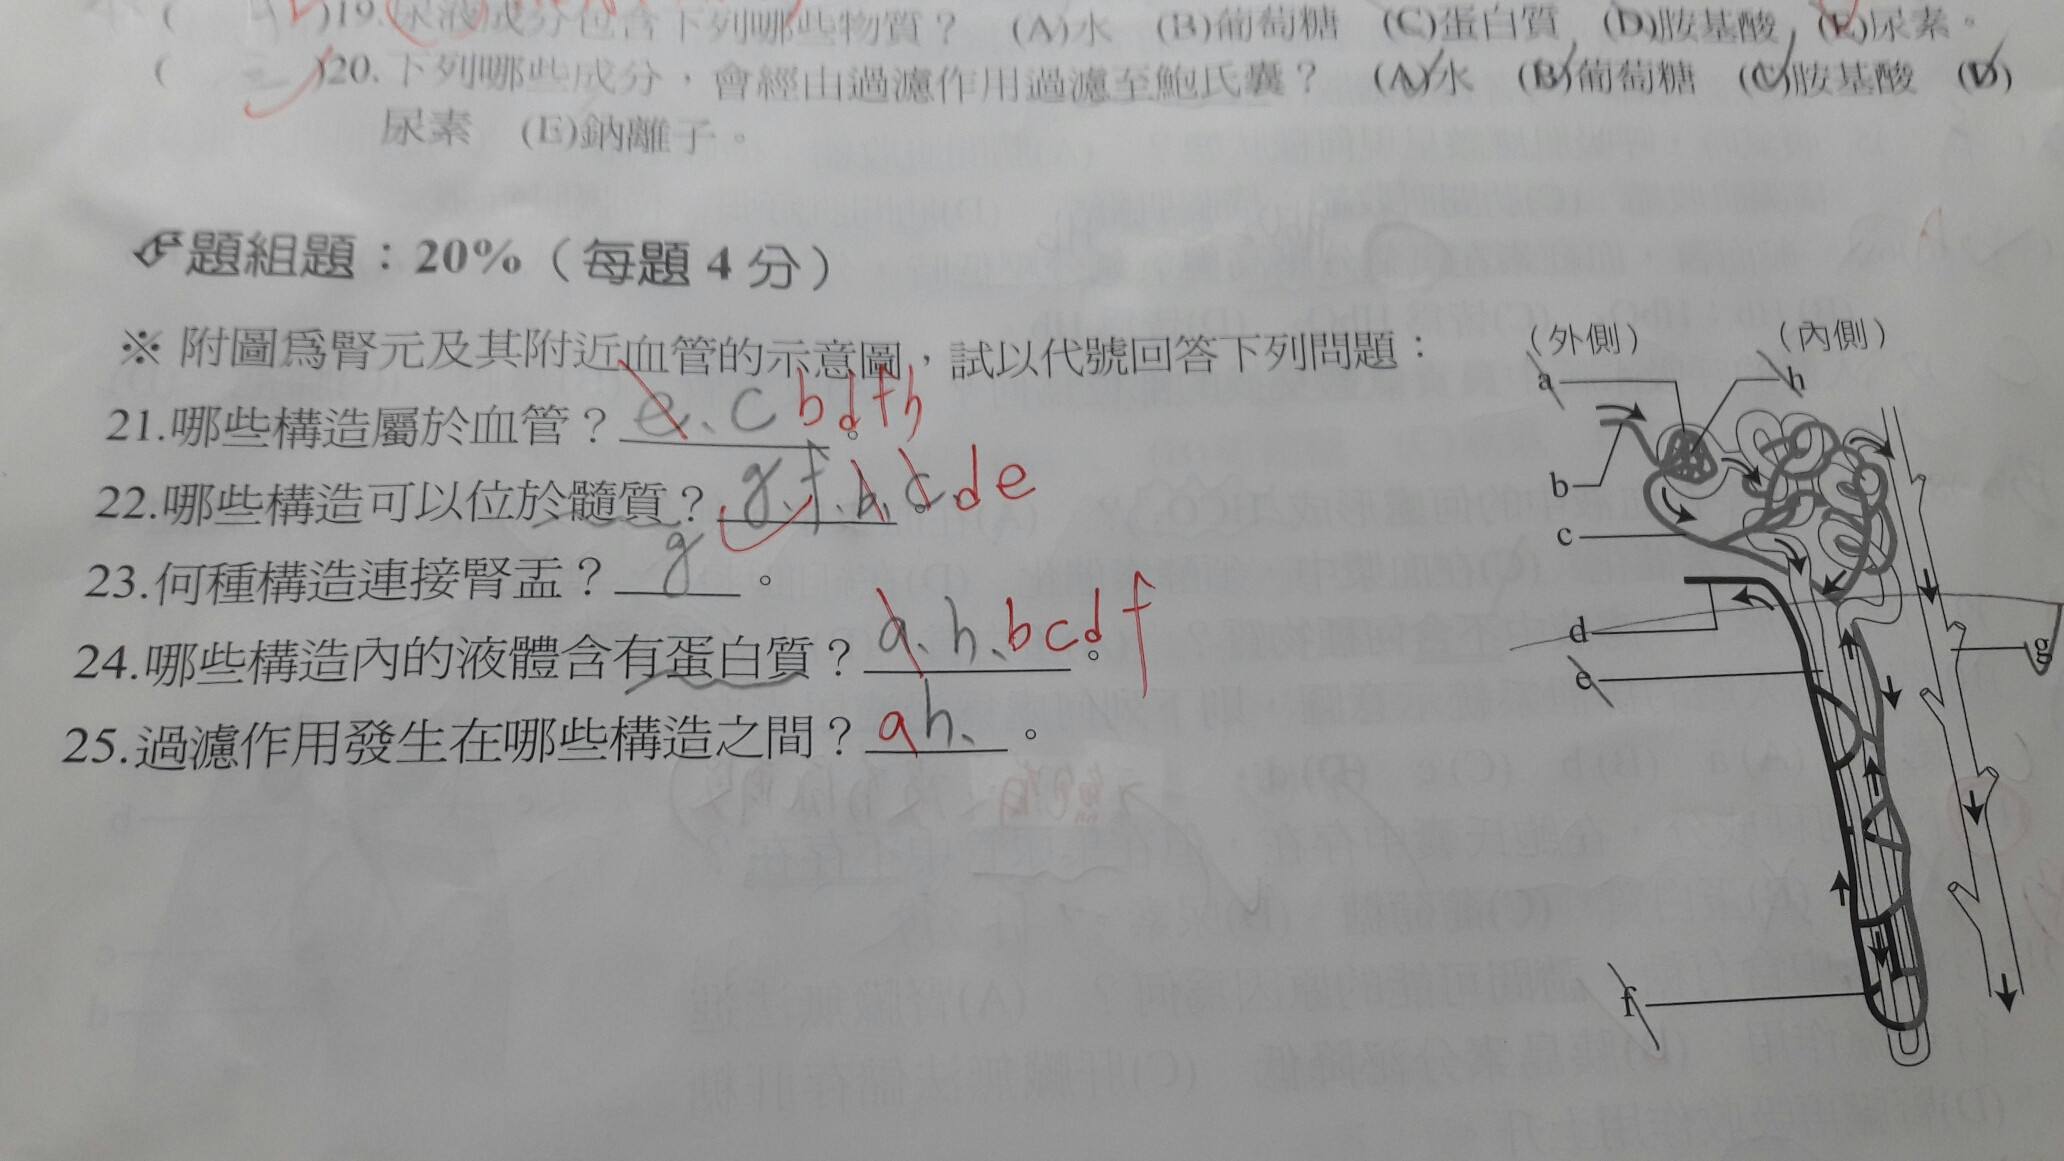 )19.尿液成分包含下列哪些物質？ (A)水 (B)葡萄糖 (C)蛋白質 (D)胺基酸 (E)尿素。
( )20.下列哪些成分，會經由過濾作用過濾至鮑氏囊？ (A)水 (B)葡萄糖 (C)胺基酸 (D)
尿素 (E)鈉離子。
題組題：20%（每題 4 分）
※ 附圖為腎元及其附近血管的示意圖，試以代號回答下列問題：
21.哪些構造屬於血管？e、c b d f h。
22.哪些構造可以位於髓質？g、f、h、c d e。
23.何種構造連接腎盂？g。
24.哪些構造內的液體含有蛋白質？a、h、b c d f。
25.過濾作用發生在哪些構造之間？a h、。
（外側） （內側）
a h
b
c
d
g
e
f